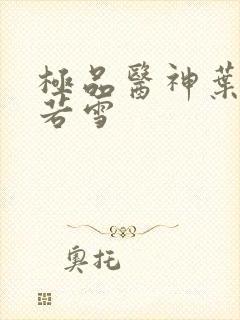 極品醫神葉
若雪
奧托